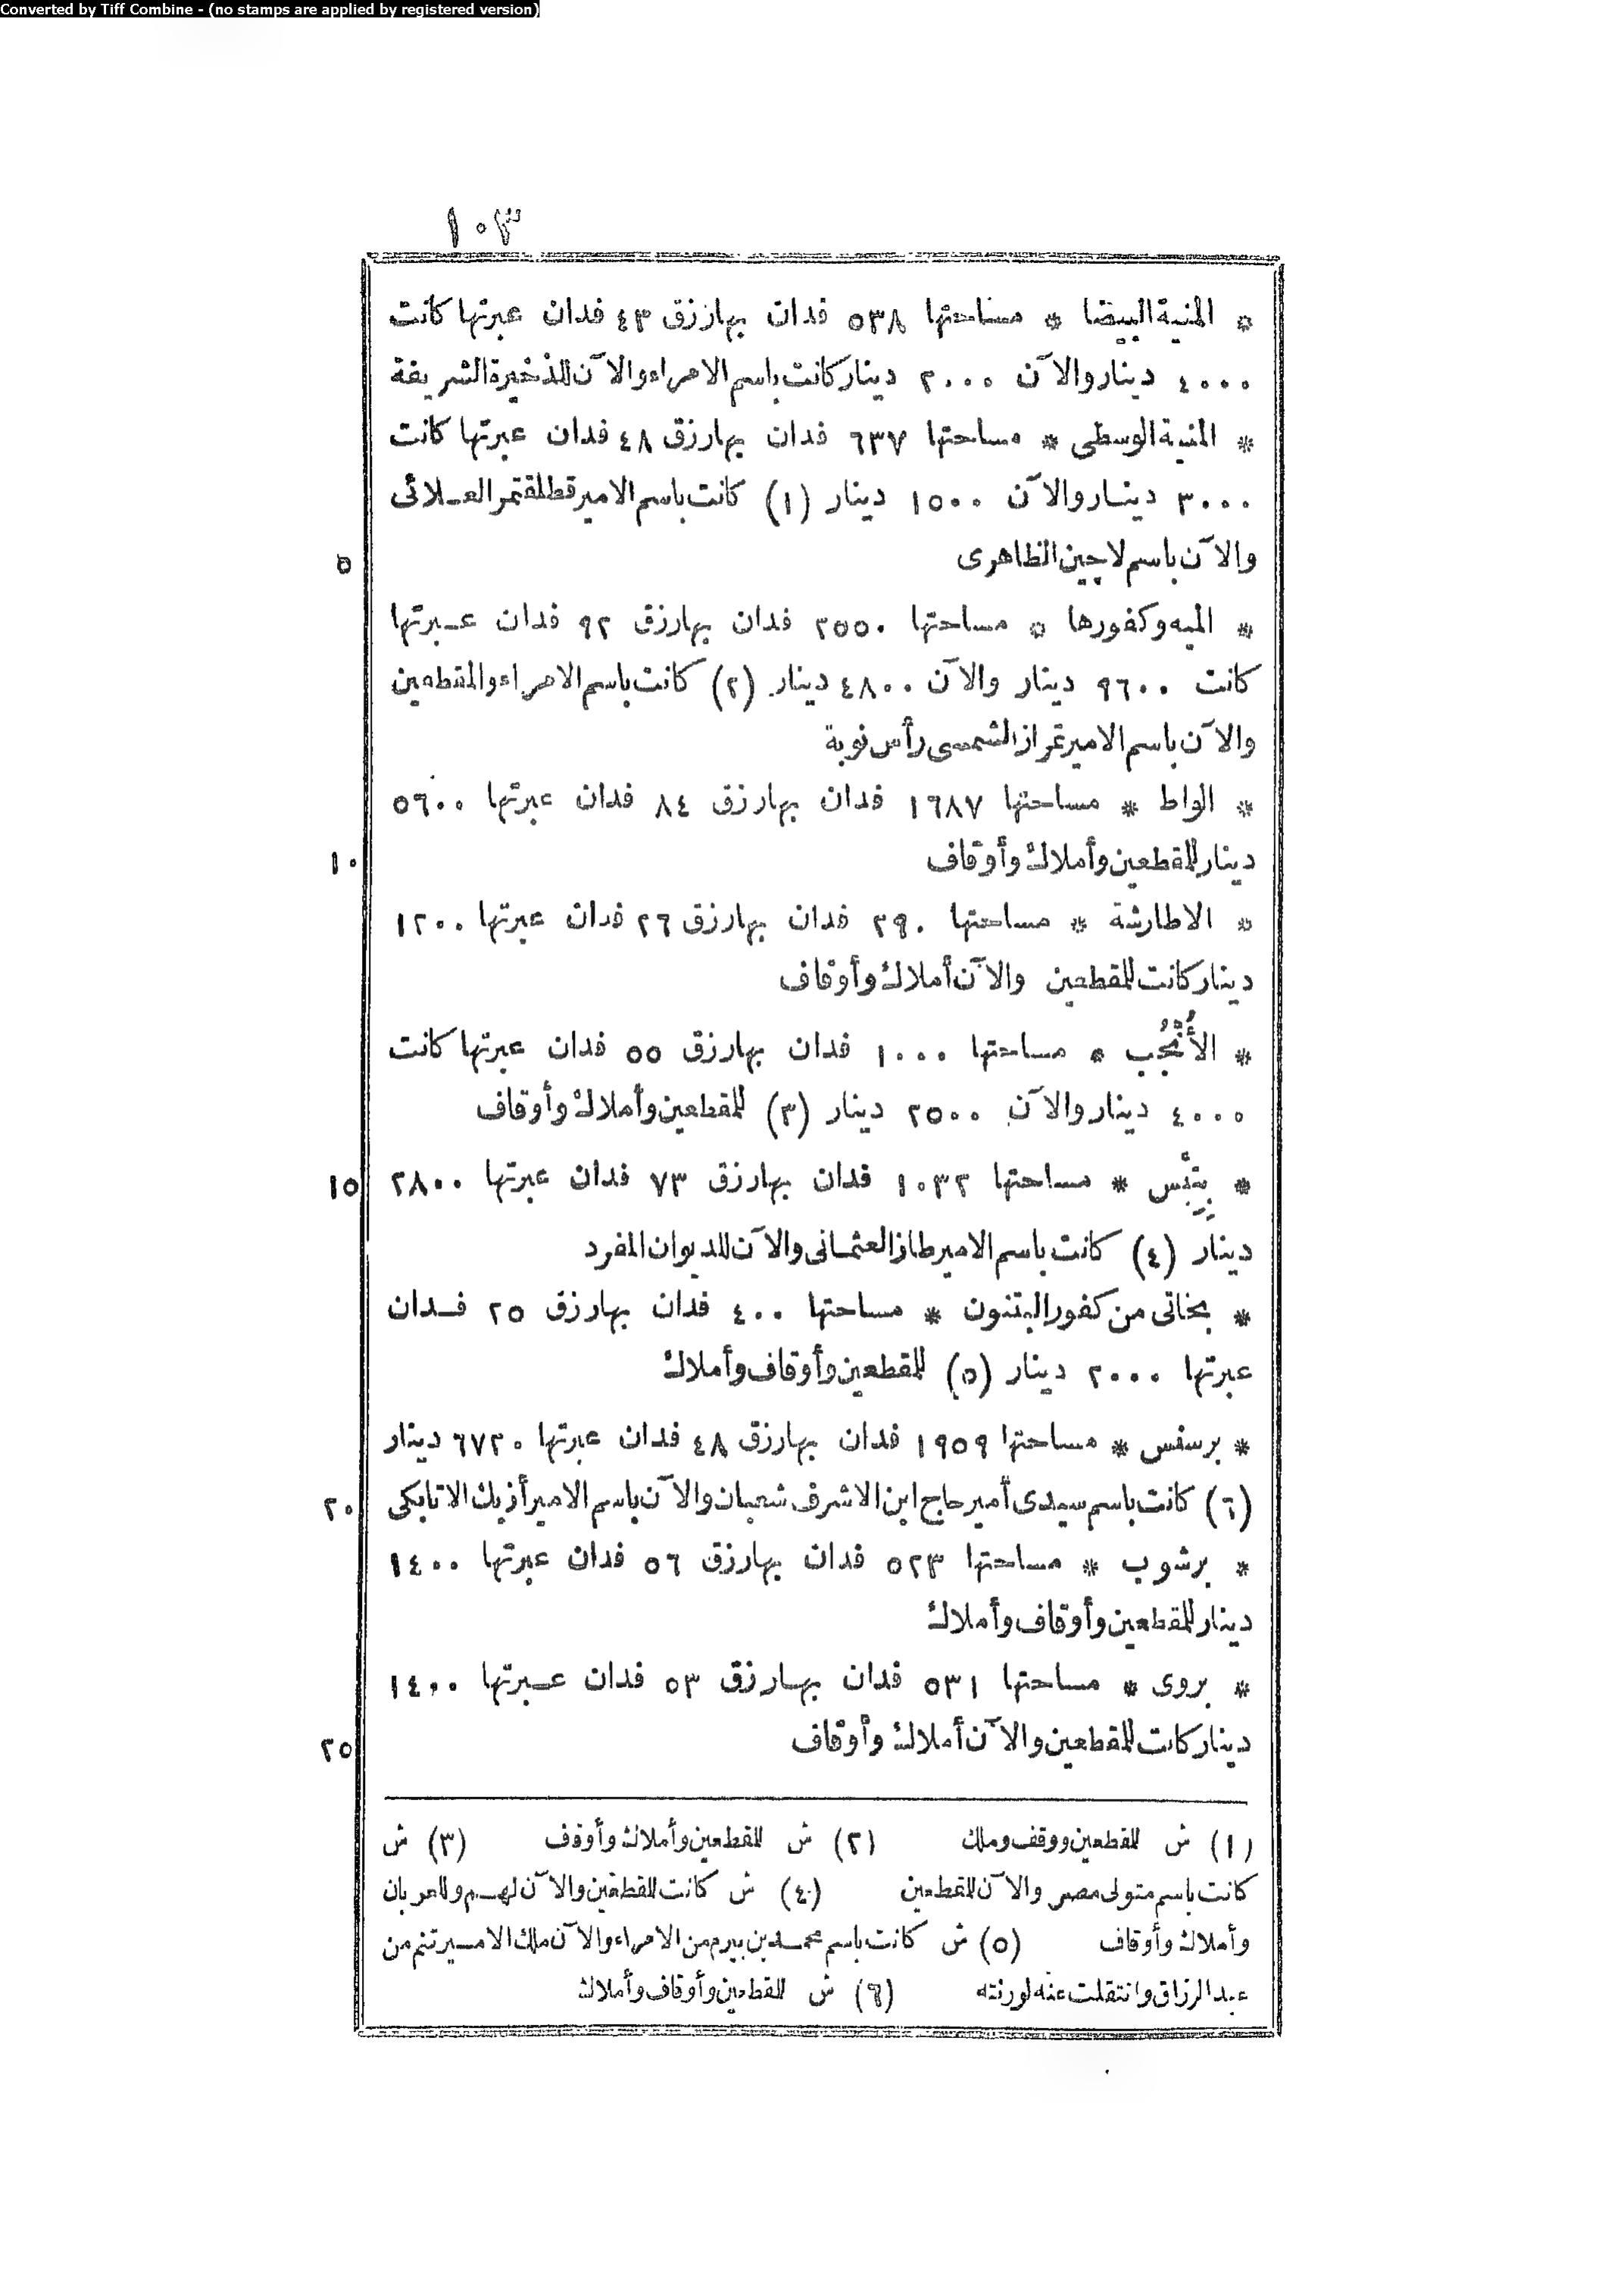 Converted by Tiff Combine - (no stamps are applied by registered version)
١٠٣
* المنية البيضا * مساحتها ٥٣٨ فدان بها رزق ٤٣ فدان عبرتها كانت
٤٠٠٠ دينار والآن ٢٠٠٠ دينار كانت باسم الامراء والآن للذخيرة الشريفة
* المنية الوسطى * مساحتها ٦٣٧ فدان بها رزق ٤٨ فدان عبرتها كانت
٣٠٠٠ دينار والآن ١٥٠٠ دينار (١) كانت باسم الامير قطلقتمر العلائى
٥ والآن باسم لاجين الظاهرى
* الميه وكفورها * مساحتها ٢٥٥٠ فدان بها رزق ٩٢ فدان عبرتها
كانت ٩٦٠٠ دينار والآن ٤٨٠٠ دينار (٢) كانت باسم الامراء والمقطعين
والآن باسم الامير تمراز الشمسى رأس نوبة
* الواط * مساحتها ١٦٨٧ فدان بها رزق ٨٤ فدان عبرتها ٥٦٠٠
١٠ دينار للمقطعين وأملاك وأوقاف
* الاطارشة * مساحتها ٢٩٠ فدان بها رزق ٢٦ فدان عبرتها ١٢٠٠
دينار كانت للمقطعين والآن أملاك وأوقاف
* الأُنْجُب * مساحتها ١٠٠٠ فدان بها رزق ٥٥ فدان عبرتها كانت
٤٠٠٠ دينار والآن ٢٥٠٠ دينار (٣) للمقطعين وأملاك وأوقاف
١٥ * مساحتها ١٠٣٢ فدان بها رزق ٧٣ فدان عبرتها ٢٨٠٠
دينار (٤) كانت باسم الامير طاز العثمانى والآن للديوان المفرد
* بخاتى من كفور البتنون * مساحتها ٤٠٠ فدان بها رزق ٢٥ فدان
عبرتها ٢٠٠٠ دينار (٥) للمقطعين وأوقاف وأملاك
* برسفس * مساحتها ١٩٥٩ فدان بها رزق ٤٨ فدان عبرتها ٦٧٢٠ دينار
٢٠ (٦) كانت باسم سيدى أمير حاج ابن الاشرف شعبان والآن باسم الامير أزبك الاتابكى
* برشوب * مساحتها ٥٢٣ فدان بها رزق ٥٦ فدان عبرتها ١٤٠٠
دينار للمقطعين وأوقاف وأملاك
* بروى * مساحتها ٥٣١ فدان بها رزق ٥٣ فدان عبرتها ١٤٠٠
٢٥ دينار كانت للمقطعين والآن أملاك وأوقاف
(١) ش للمقطعين ووقف وملك (٢) ش للمقطعين وأملاك وأوقف (٣) ش
كانت باسم متولى مصر والآن للمقطعين (٤) ش كانت للمقطعين والآن لهم وللعربان
وأملاك وأوقاف (٥) ش كانت باسم محمد بن بيرم من الامراء والآن ملك الامير تنم من
عبد الرزاق وانتقلت عنه لورثته (٦) ش للمقطعين وأوقاف وأملاك